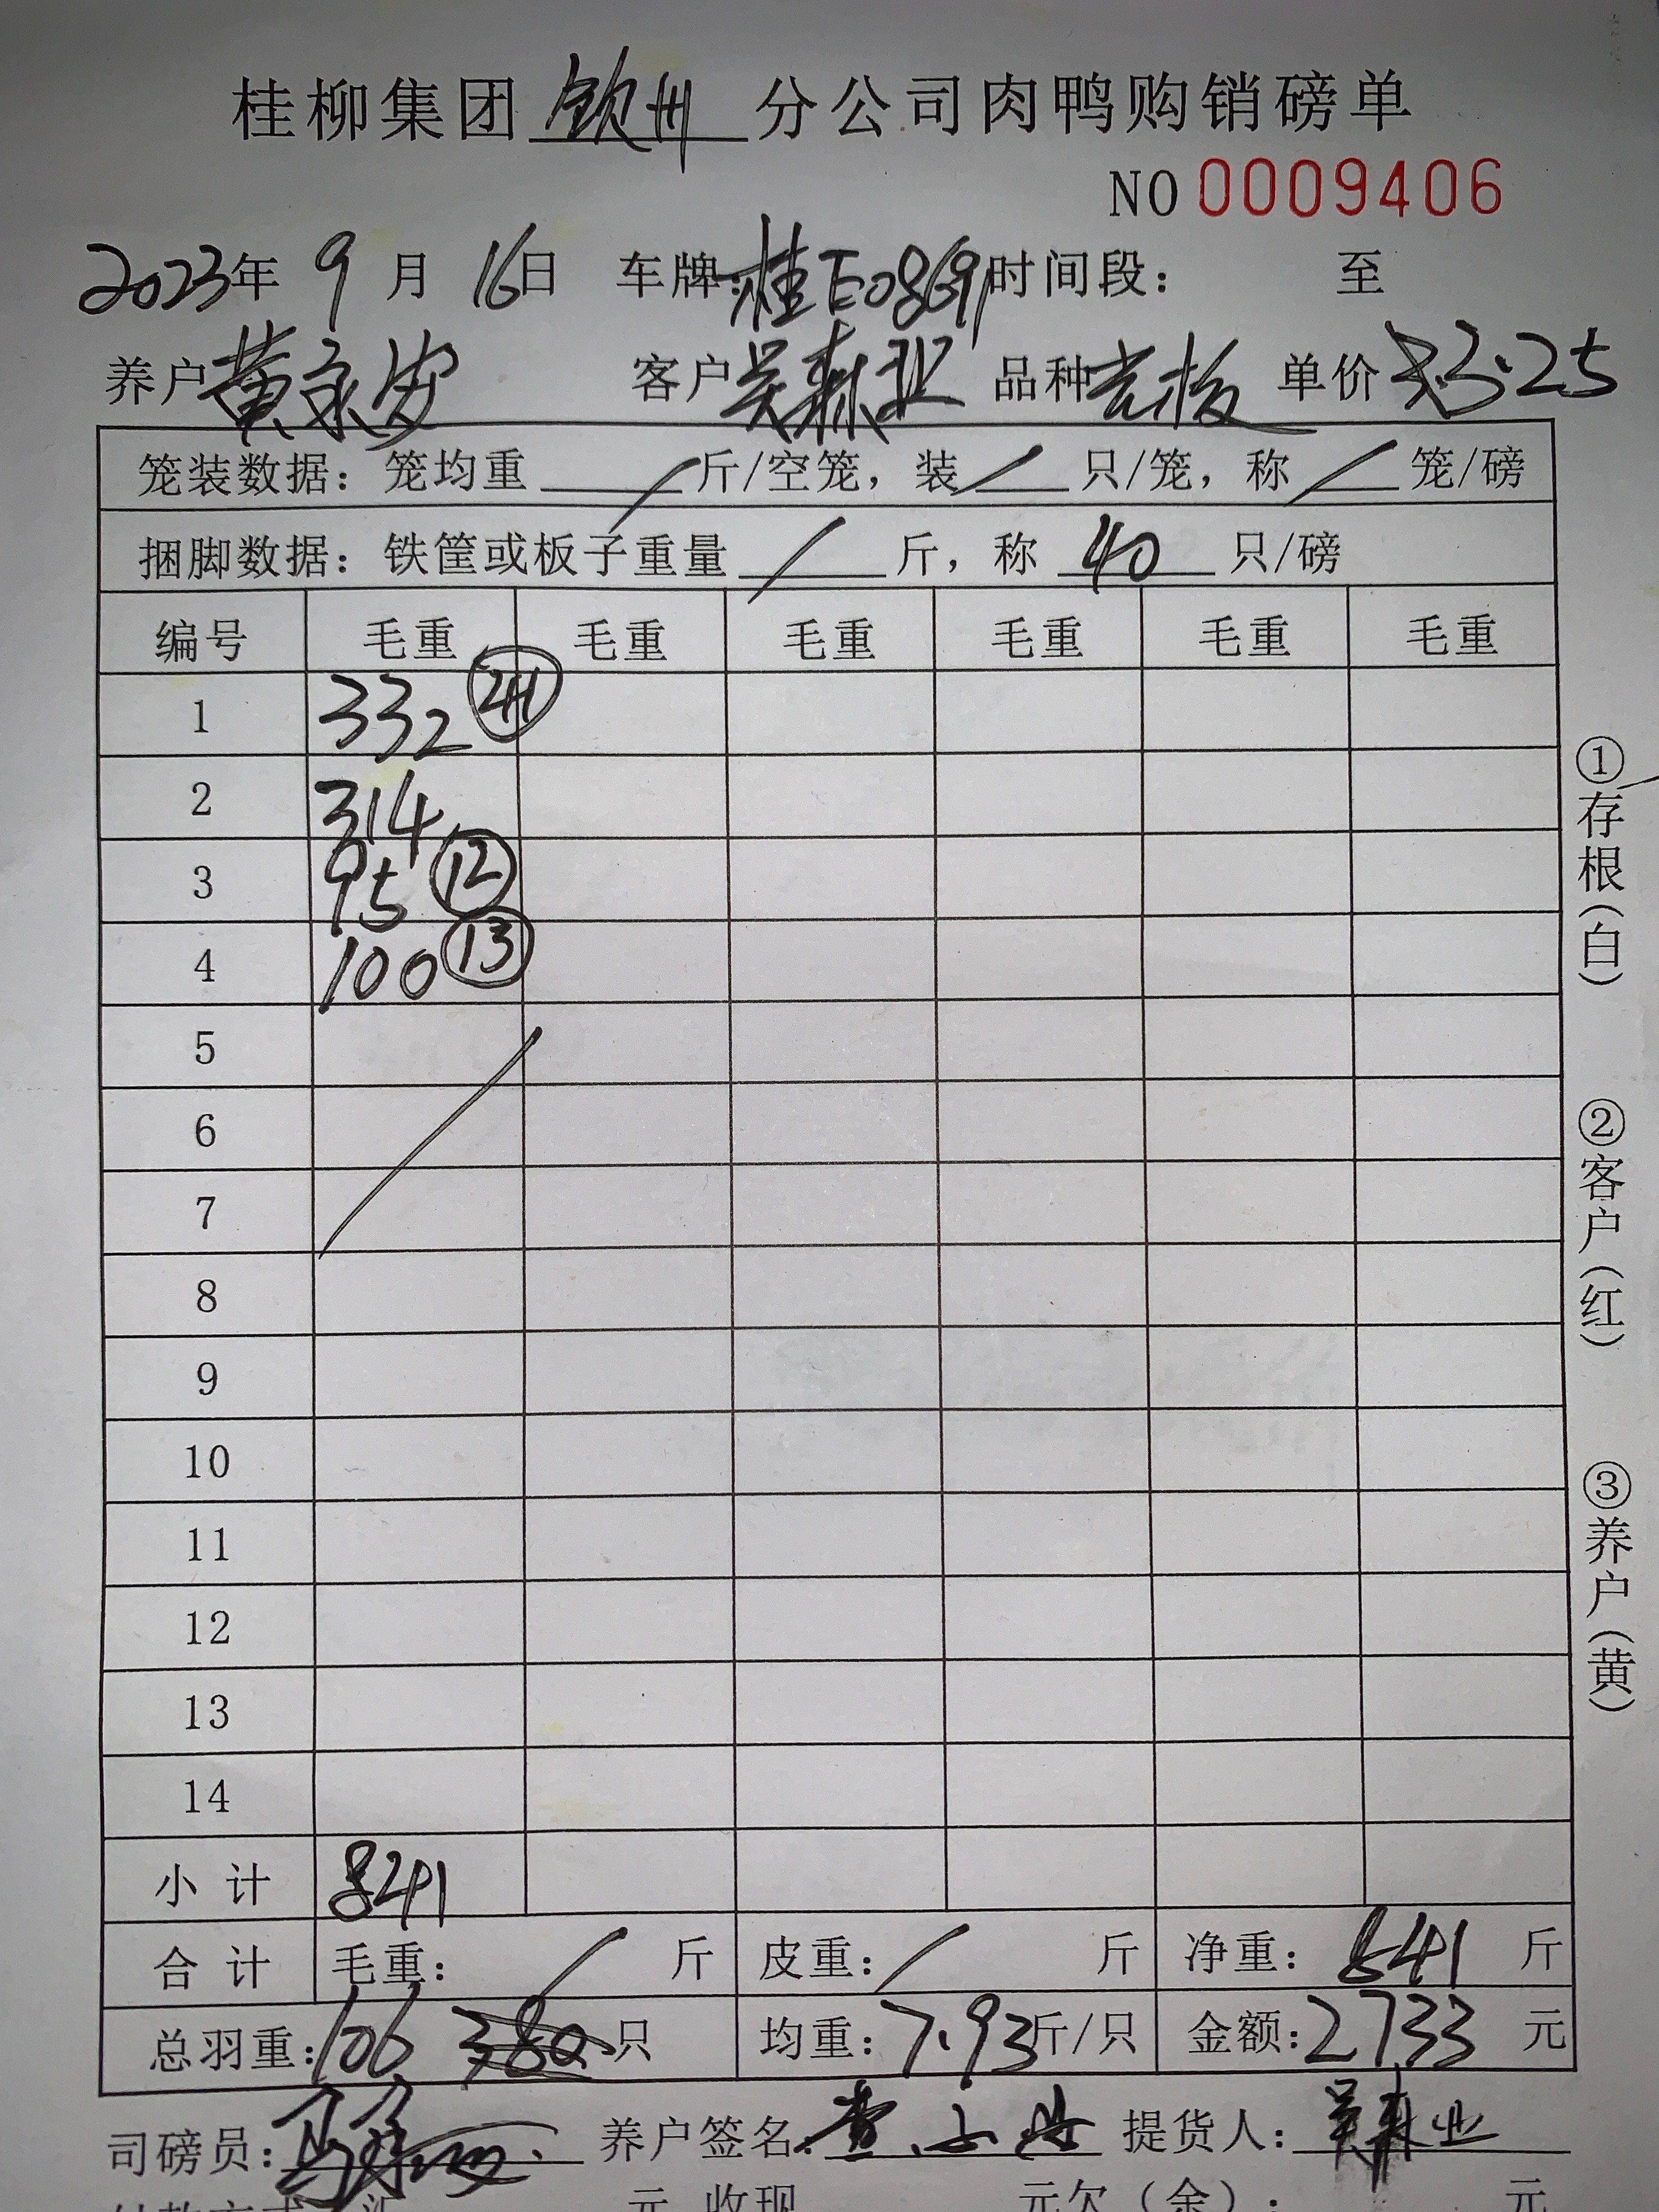 桂柳集团 钦州 分公司肉鸭购销磅单
NO 0009406
2023年 9 月 16日 车牌:桂E0869 时间段: 至
养户 黄 客户 吴森业 品种 单价 3.25
笼装数据: 笼均重 / 斤/空笼, 装 / 只/笼, 称 / 笼/磅
捆脚数据: 铁筐或板子重量 / 斤, 称 40 只/磅
编号 毛重 毛重 毛重 毛重 毛重 毛重
1 332 (41)
2 314
3 95 (12)
4 100 (13)
5
6
7
8
9
10
11
12
13
14
小 计 841
合 计 毛重: / 斤 皮重: / 斤 净重: 841 斤
总羽重: 106 380 只 均重: 7.93 斤/只 金额: 2733 元
司磅员: 养户签名: 黄小 提货人: 吴森业
元 收现 元欠(余): 元
①存根(白)
②客户(红)
③养户(黄)